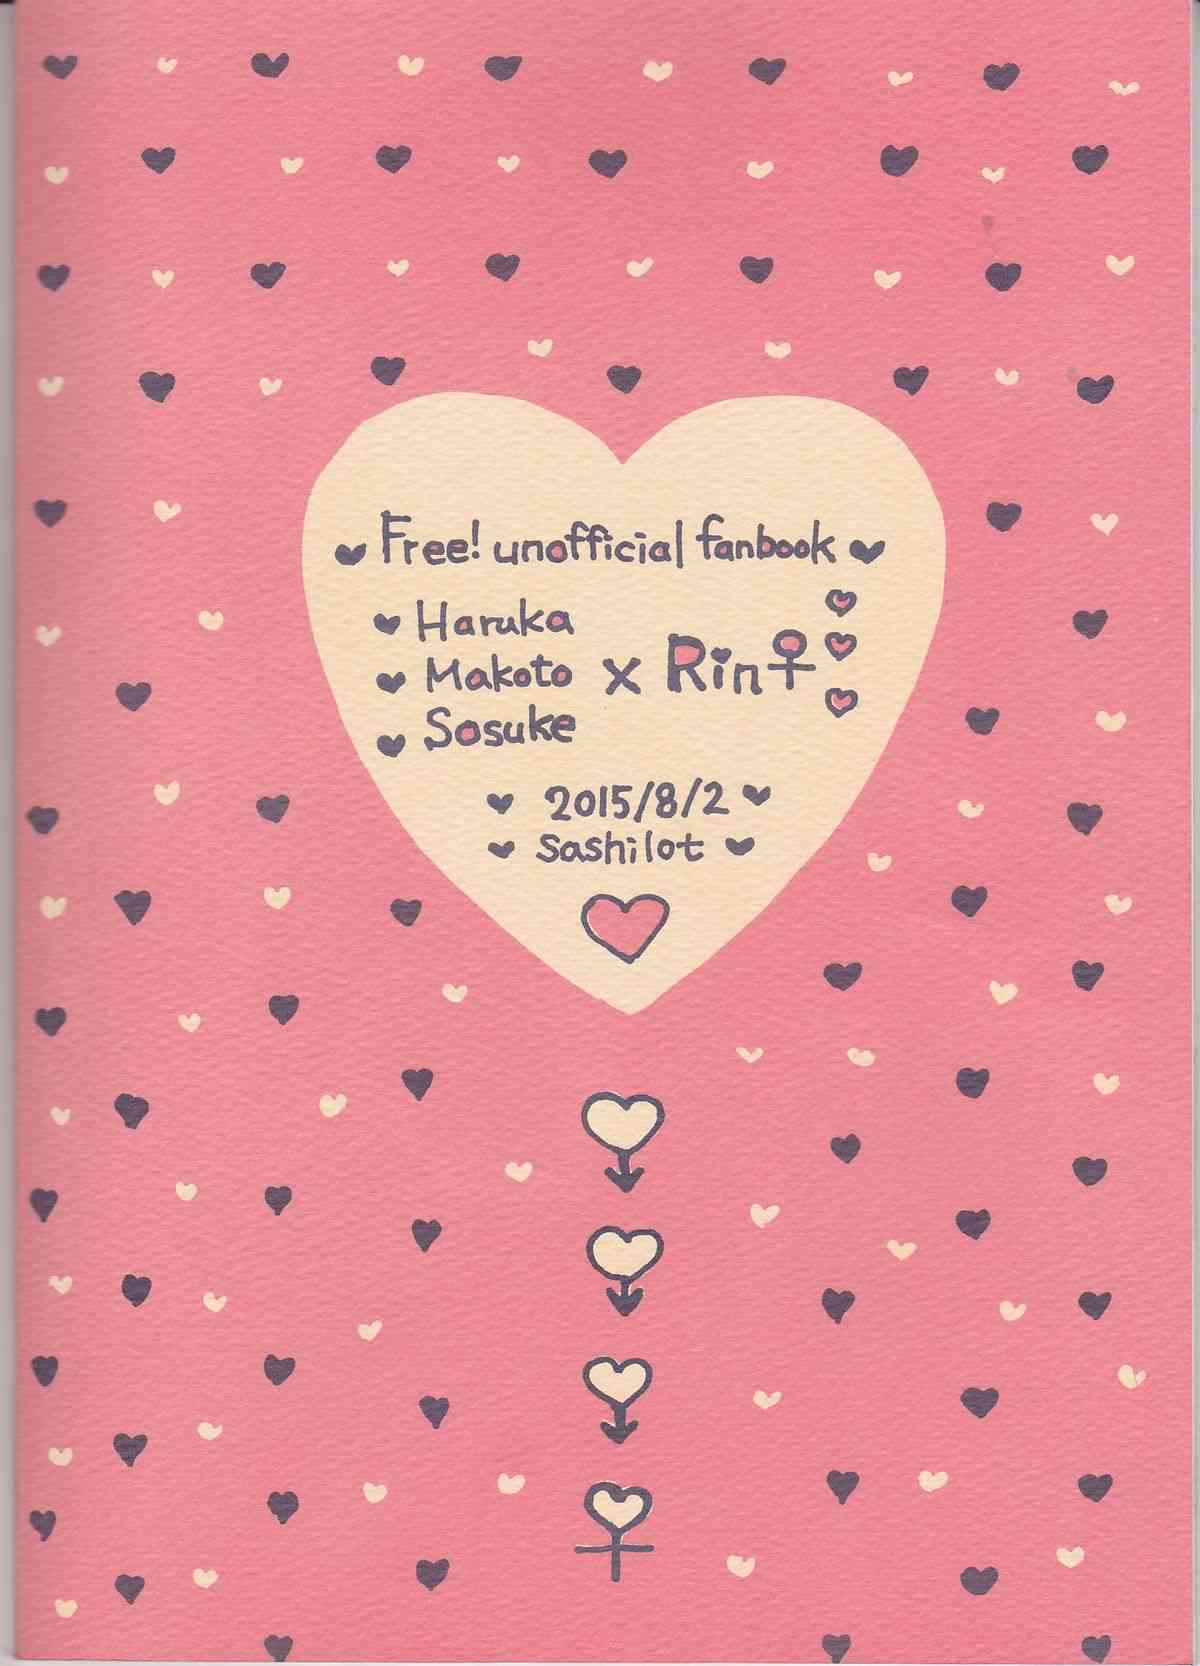 Free! unofficial fanbook
Haruka
Makoto x Rin♀
Sosuke
2015/8/2
sashilot